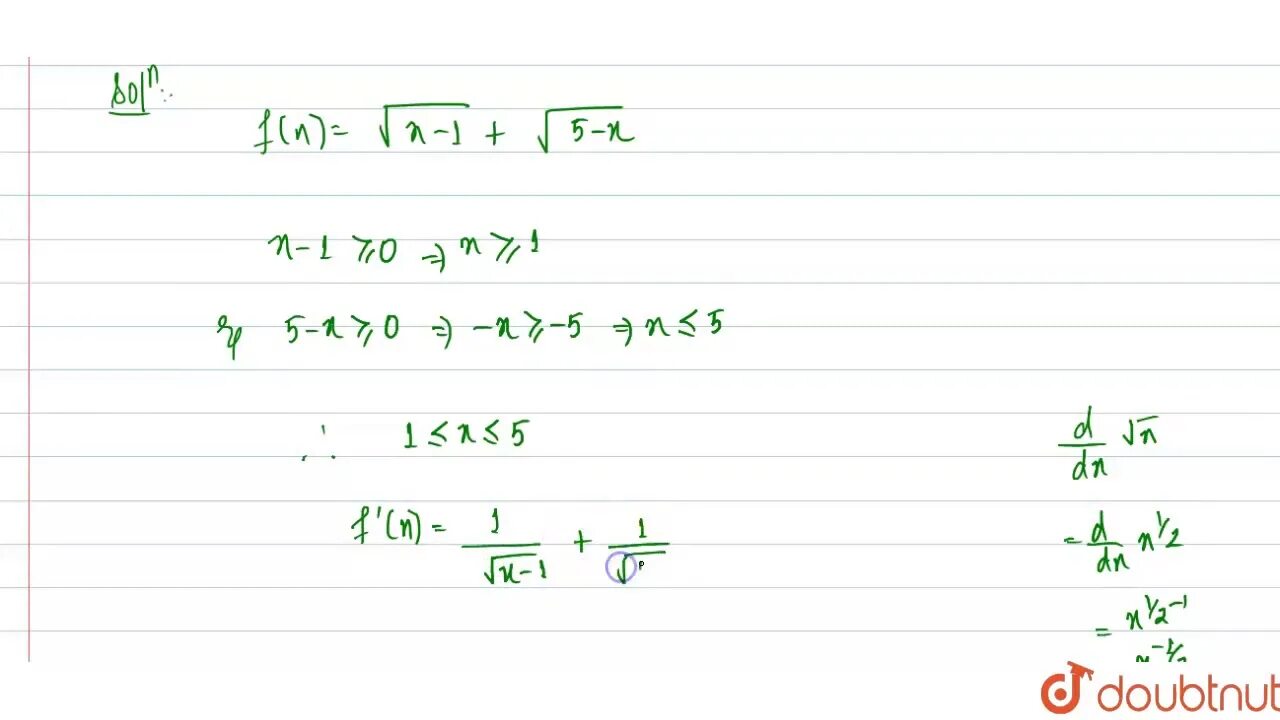 Solⁿ:
f(x) = √(x-1) + √(5-x)
x-1 ⩾ 0 ⇒ x ⩾ 1
& 5-x ⩾ 0 ⇒ -x ⩾ -5 ⇒ x ≤ 5
∴ 1 ≤ x ≤ 5
f'(x) = 1/√(x-1) + 1/√
d/dx √x
= d/dx x^1/2
= x^1/2-1
x^-1/2
doubtnut